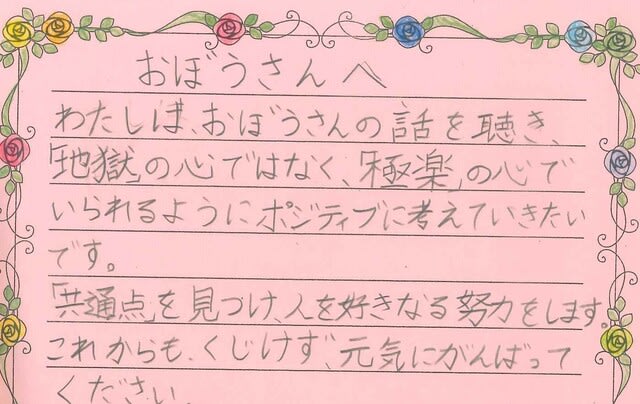 おぼうさんへ
わたしは、おぼうさんの話を聴き、
「地獄」の心ではなく、「極楽」の心で
いられるようにポジティブに考えていきたい
です。
「共通点」を見つけ、人を好きなる努力をします。
これからも、くじけず、元気にがんばって
ください。